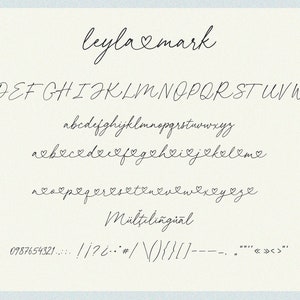 leyla♡mark
DEFGHIJKLMNOPQRSTUVW
abcdefghijklmnopqrstuvwxyz
a♡b♡c♡d♡e♡f♡g♡h♡i♡j♡k♡l♡m♡
n♡o♡p♡q♡r♡s♡t♡u♡v♡w♡x♡y♡z♡
Mültilinğüāl
0987654321